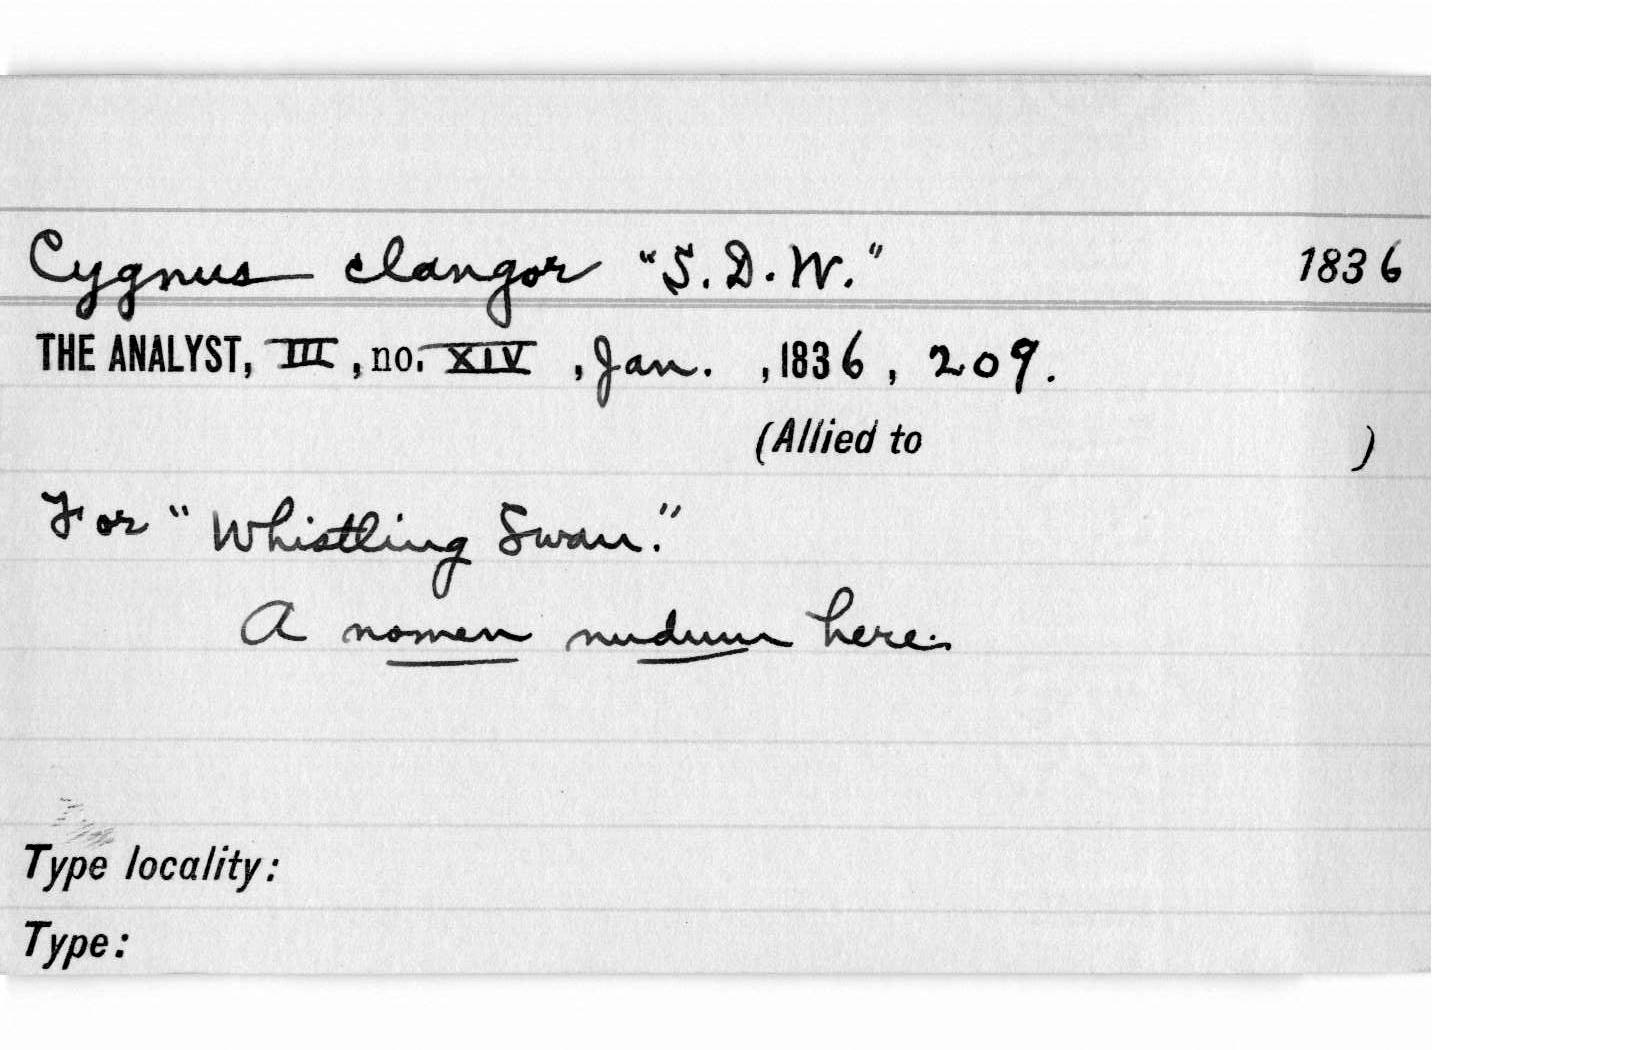 Cygnus clangor "S.D.W." 1836
THE ANALYST, III, no. XIV, Jan., 1836, 209.
(Allied to )
For "Whistling Swan."
A nomen nudum here.
Type locality:
Type: